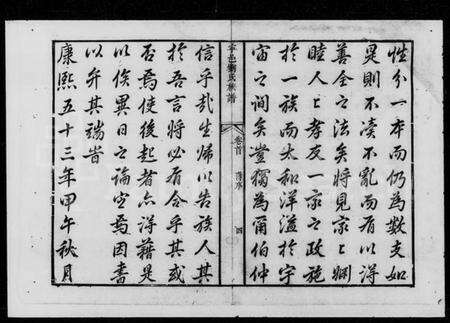 性分一本而仍為數支如
是則不凟不亂而有以得
善全之法矣將見家〻嫻
睦人〻孝友一家之政施
於一族而太和洋溢於宇
宙之间矣豈獨為爾伯仲
寧邑劉氏族譜
卷首
舊序
四
信乎哉生歸以告族人其
於吾言將必有合乎其或
否焉使後起者亦得藉是
以俟異日之論定焉因書
以弁其端旹
康熙五十三年甲午秋月